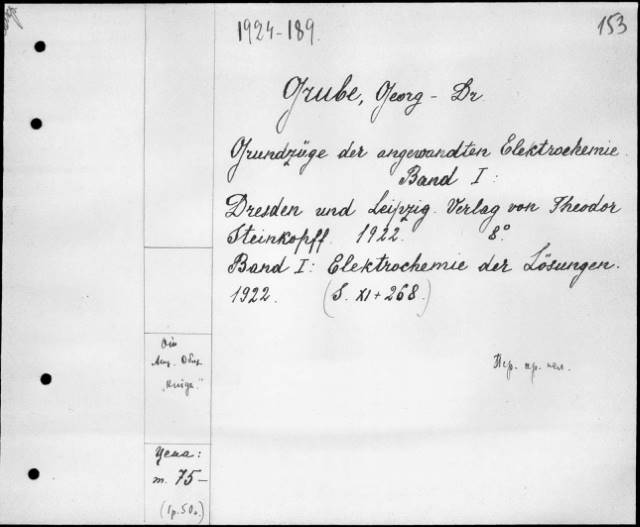 1924-189.
153
Grube, Georg - Dr.
Grundzüge der angewandten Elektrochemie.
Band I:
Dresden und Leipzig. Verlag von Theodor
Steinkopff. 1922. 8°.
Band I: Elektrochemie der Lösungen.
1922. (S. XI + 268.)
"Книга."
Пер. пр. чел.
Цена:
m. 75-
(1р. 50к.)